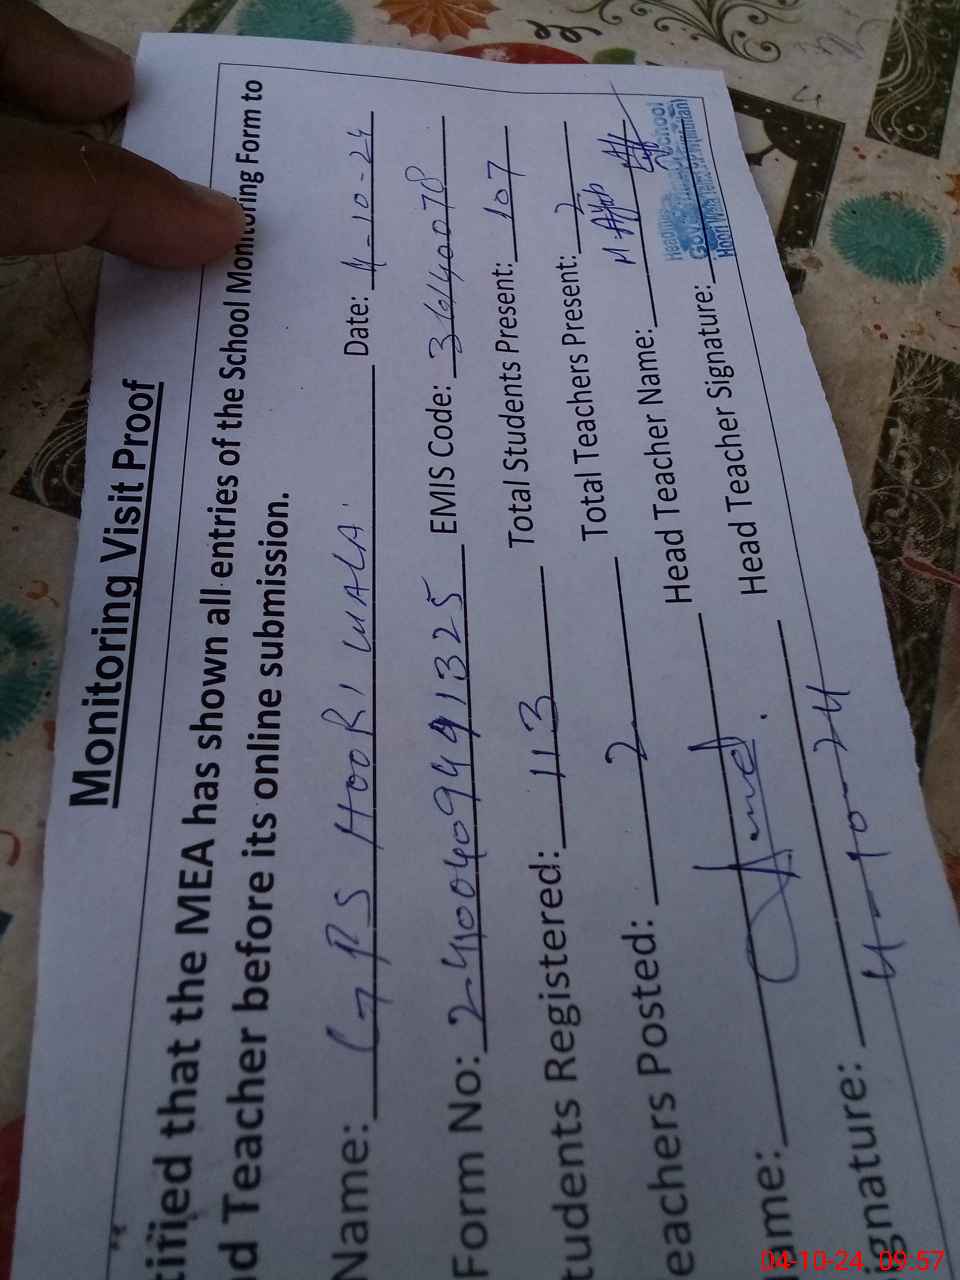 Monitoring Visit Proof
tified that the MEA has shown all entries of the School Monitoring Form to
d Teacher before its online submission.
Name: GPS HOORI WALA Date: 4-10-24
Form No: EMIS Code:
tudents Registered: 113 Total Students Present: 107
eachers Posted: 2 Total Teachers Present: 2
ame: Head Teacher Name: M. Ayub
ignature: 4-10-24 Head Teacher Signature:
04-10-24 09:57